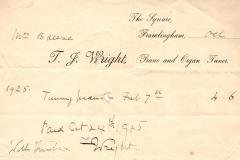 The Square,
Mrs Breese
Framlingham, Oct
T. J. Wright, Piano and Organ Tuner.
1925. Tuning piano Feb 7th 4 6
Paid Oct 24th 1925
With thanks T Wright.